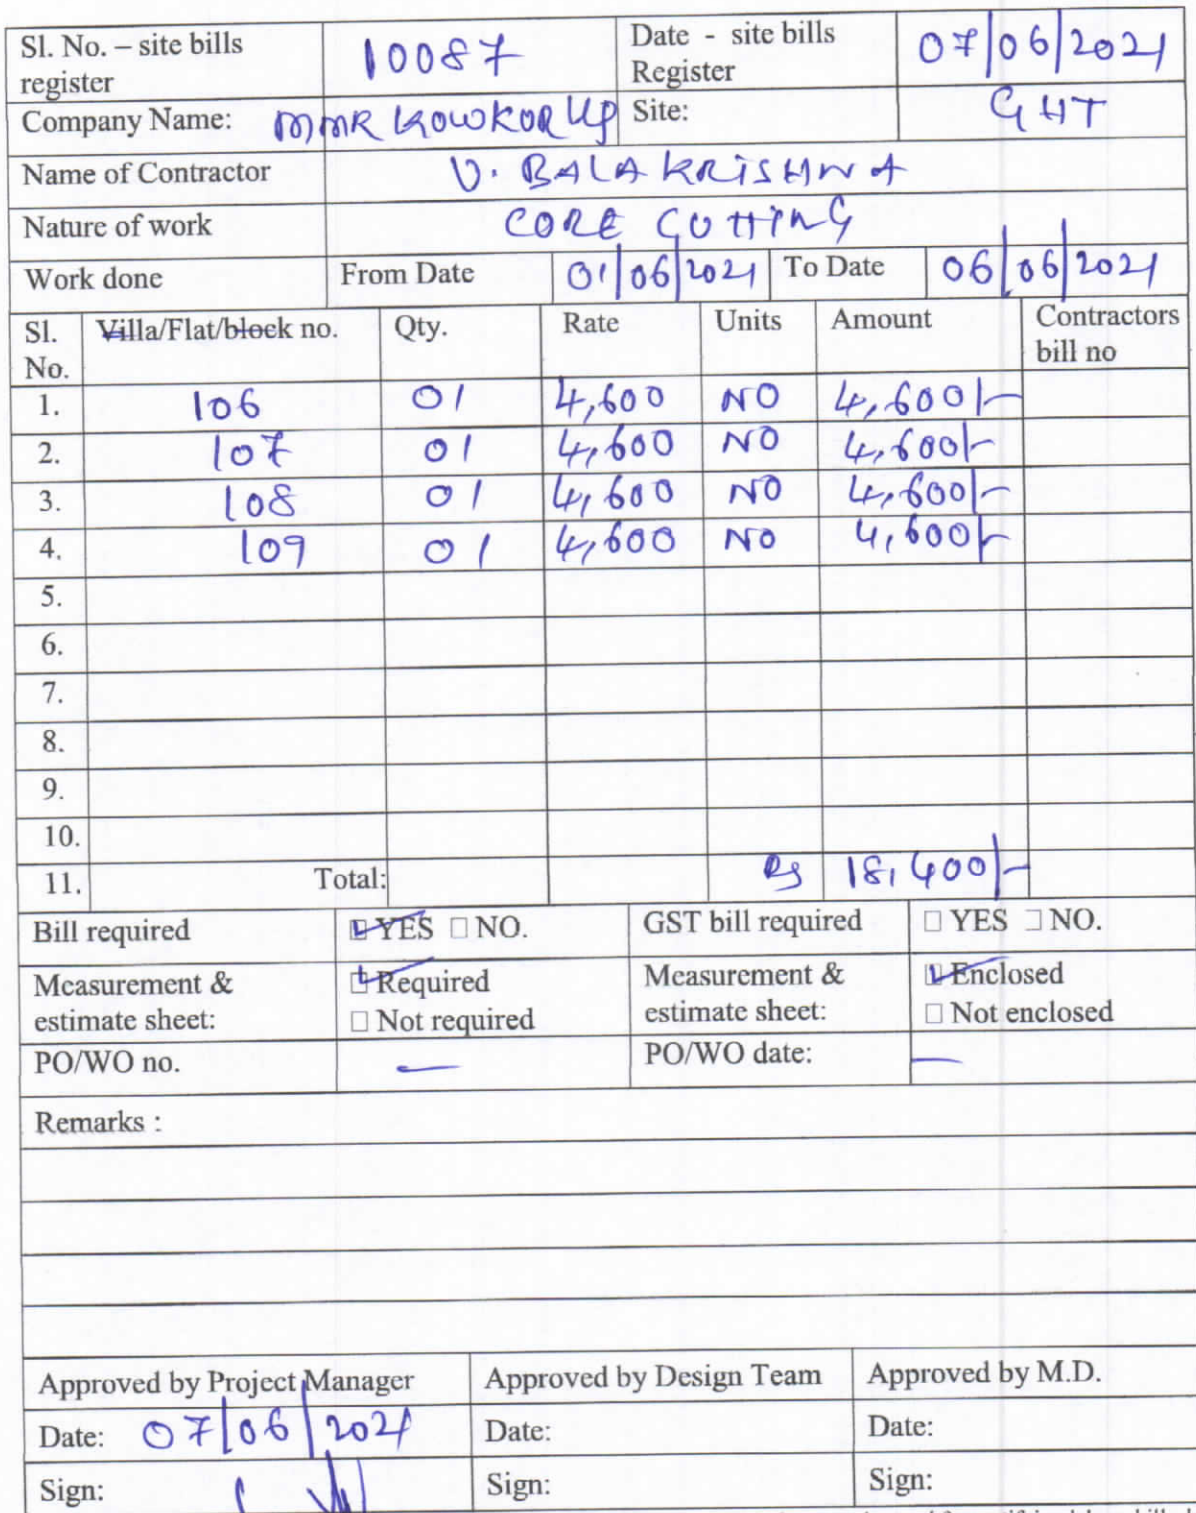 Sl. No. – site bills register 10087 Date - site bills Register 07/06/2021
Company Name: MMR KOWKUR LLP Site: GHT
Name of Contractor V. BALA KRISHNA
Nature of work CORE CUTTING
Work done From Date 01/06/2021 To Date 06/06/2021
Sl. No. Villa/Flat/block no. Qty. Rate Units Amount Contractors bill no
1. 106 01 4,600 NO 4,600/-
2. 107 01 4,600 NO 4,600/-
3. 108 01 4,600 NO 4,600/-
4. 109 01 4,600 NO 4,600/-
5.
6.
7.
8.
9.
10.
11. Total: Rs 18,400/-
Bill required ☑ YES □ NO. GST bill required □ YES □ NO.
Measurement & estimate sheet: ☑ Required □ Not required Measurement & estimate sheet: ☑ Enclosed □ Not enclosed
PO/WO no. — PO/WO date: —
Remarks :
Approved by Project Manager Approved by Design Team Approved by M.D.
Date: 07/06/2021 Date: Date:
Sign: Sign: Sign: